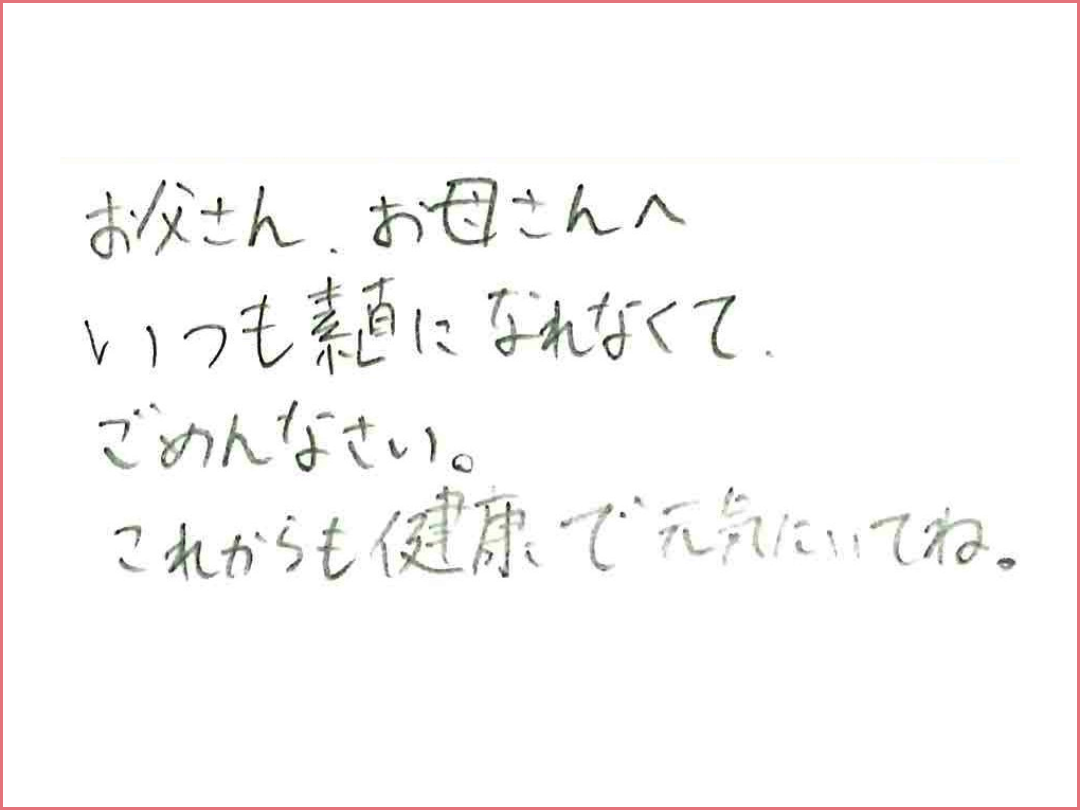 お父さん、お母さんへ
いつも素直になれなくて、
ごめんなさい。
これからも健康で元気にいてね。